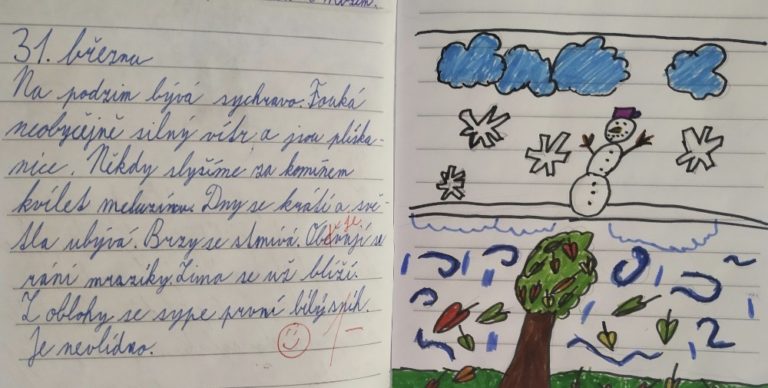 31. března
Na podzim bývá sychravo. Fouká
neobyčejně silný vítr a jsou pliska-
nice. Někdy slyšíme za komínem
kvílet meluzínu. Dny se krátí a svě-
tla ubývá. Brzy se stmívá. Objevují se
ranní mrazíky. Zima se už blíží.
Z oblohy se sype první bílý sníh.
Je nevlídno.
1-